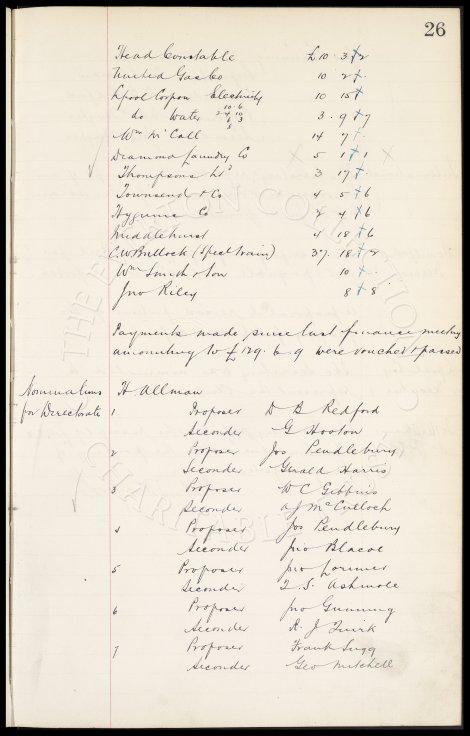 26
Head Constable £10. 3. 2
United Gas Co 10 2
Lpool Corpon Electricity 10 15
do Water 3. 9. 7
Wm McCall 14 7
Diamond Laundry Co 5 1 1
Thompsons Ltd 3 17
Townsend & Co 4 5 6
Hygienic Co 2 4 6
Middlehurst 4 18 6
C. W. Bullock (Spec train) 37. 18
Wm Smith & Son 10
Jno Riley 8 8
Payments made since last finance meeting
amounting to £129. 6. 9 were vouched & passed
Nominations H Allman
for Directorate 1 Proposer D B Redford
Seconder G Hooton
2 Proposer Jos Pendlebury
Seconder Gerald Harris
3 Proposer W C Gibbins
Seconder A J McCulloch
4 Proposer Jos Pendlebury
Seconder Jno Blacoe
5 Proposer Jno Lorimer
Seconder T. S. Ashmole
6 Proposer Jno Gunning
Seconder R. J Quirk
7 Proposer Frank Sugg
Seconder Geo Mitchell
THE EVERTON COLLECTION
CHARITABLE